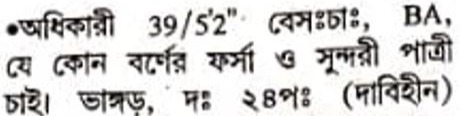 •অধিকারী 39/5'2" বেসঃচাঃ, BA,
যে কোন বর্ণের ফর্সা ও সুন্দরী পাত্রী
চাই। ভাঙ্গড়, দঃ ২৪পঃ (দাবিহীন)